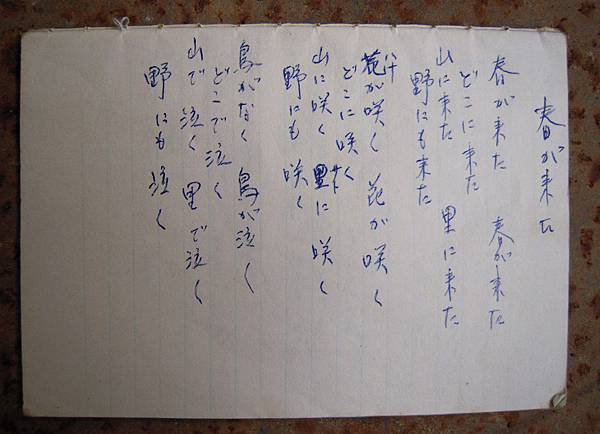 春が来た
春が来た 春が来た
どこに来た
山に来た 里に来た
野にも来た
花が咲く 花が咲く
どこに咲く
山に咲く 里に咲く
野にも咲く
鳥がなく 鳥が泣く
どこで泣く
山で泣く 里で泣く
野にも泣く